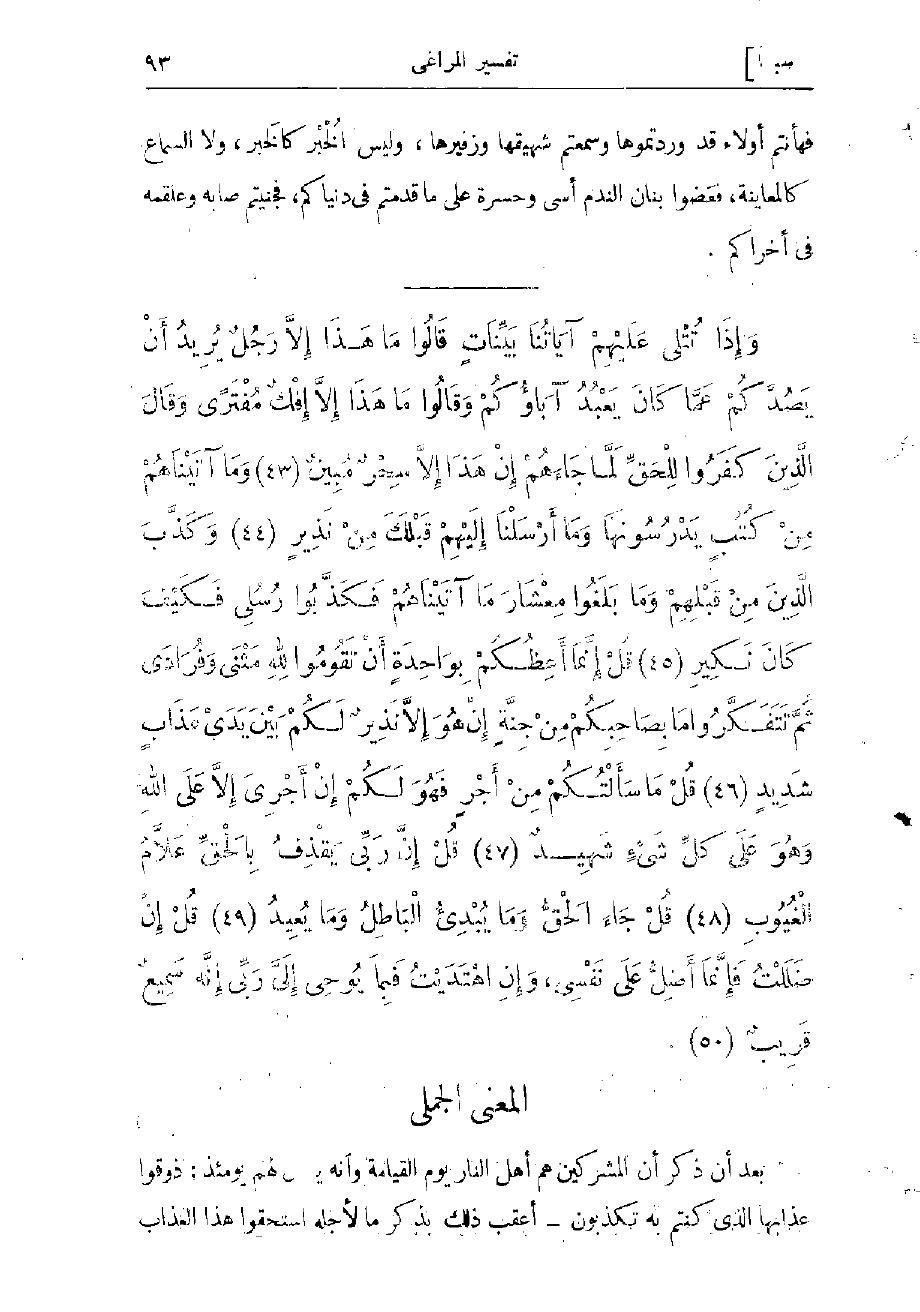 سبـأ]
تفسير المراغى
٩٣
فهأنتم أولاء قد وردتموها وسمعتم شهيقها وزفيرها ، وليس الْخُبْر كالخَبر ، ولا السماع
كالمعاينة ، فعَضوا بنان الندم أسى وحسرة على ما قدمتم فى دنياكم ، فجنيتم صابه وعلقمه
فى أخراكم .
وَإِذَا تُتْلَى عَلَيْهِمْ آيَاتُنَا بَيِّنَاتٍ قَالُوا مَا هَـذَا إِلاَّ رَجُلٌ يُرِيدُ أَنْ
يَصُدَّكُمْ عَمَّا كَانَ يَعْبُدُ آبَاؤُكُمْ وَقَالُوا مَا هَذَا إِلاَّ إِفْكٌ مُفْتَرًى وَقَالَ
الَّذِينَ كَفَرُوا لِلْحَقِّ لَمَّا جَاءَهُمْ إِنْ هَذَا إِلاَّ سِحْرٌ مُبِينٌ (٤٣) وَمَا آتَيْنَاهُمْ
مِنْ كُتُبٍ يَدْرُسُونَهَا وَمَا أَرْسَلْنَا إِلَيْهِمْ قَبْلَكَ مِنْ نَذِيرٍ (٤٤) وَكَذَّبَ
الَّذِينَ مِنْ قَبْلِهِمْ وَمَا بَلَغُوا مِعْشَارَ مَا آتَيْنَاهُمْ فَكَذَّبُوا رُسُلِى فَكَيْفَ
كَانَ نَكِيرِ (٤٥) قُلْ إِنَّمَا أَعِظُكُمْ بِوَاحِدَةٍ أَنْ تَقُومُوا لِلهِ مَثْنَى وَفُرَادَى
ثُمَّ تَتَفَكَّرُوا مَا بِصَاحِبِكُمْ مِنْ جِنَّةٍ إِنْ هُوَ إِلاَّ نَذِيرٌ لَكُمْ بَيْنَ يَدَىْ عَذَابٍ
شَدِيدٍ (٤٦) قُلْ مَا سَأَلْتُكُمْ مِنْ أَجْرٍ فَهُوَ لَكُمْ إِنْ أَجْرِىَ إِلاَّ عَلَى اللهِ
وَهُوَ عَلَى كلِّ شَىْءٍ شَهِيدٌ (٤٧) قُلْ إِنَّ رَبِّى يَقْذِفُ بِالْحَقِّ عَلاَّمُ
الْغُيُوبِ (٤٨) قُلْ جَاءَ الْحَقُّ وَمَا يُبْدِئُ الْبَاطِلُ وَمَا يُعِيدُ (٤٩) قُلْ إِنْ
ضَلَلْتُ فَإِنَّمَا أَضِلُّ عَلَى نَفْسِى ، وَإِنِ اهْتَدَيْتُ فَبِمَا يُوحِى إِلَىَّ رَبِّى إِنَّهُ سَمِيعٌ
قَرِيبٌ (٥٠) .
المعنى الجملى
بعد أن ذكر أن المشركين هم أهل النار يوم القيامة وأنه لهم يومئذ : ذوقوا
عذابها الذى كنتم به تكذبون – أعقب ذلك بذكر ما لأجله استحقوا هذا العذاب